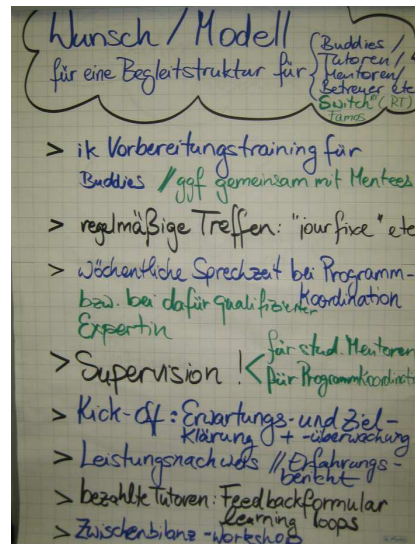 Wunsch / Modell
für eine Begleitstruktur für
Buddies /
Tutoren /
Mentoren /
Betreuer etc
Switch" (RT)
Tamas
> ik Vorbereitungstraining für
Buddies // ggf gemeinsam mit Mentees
> regelmäßige Treffen: "jour fixe" etc
> wöchentliche Sprechzeit bei Programm-
Koordination
bzw. bei dafür qualifizierter
Expertin
> Supervision ! < für stud. Mentoren
für Programmkoordinat
> Kick-off: Erwartungs- und Ziel-
klärung + -überwachung
> Leistungsnachweis // Erfahrungs-
bericht
> bezahlte Tutoren: Feedbackformular
learning loops
> Zwischenbilanz-workshop